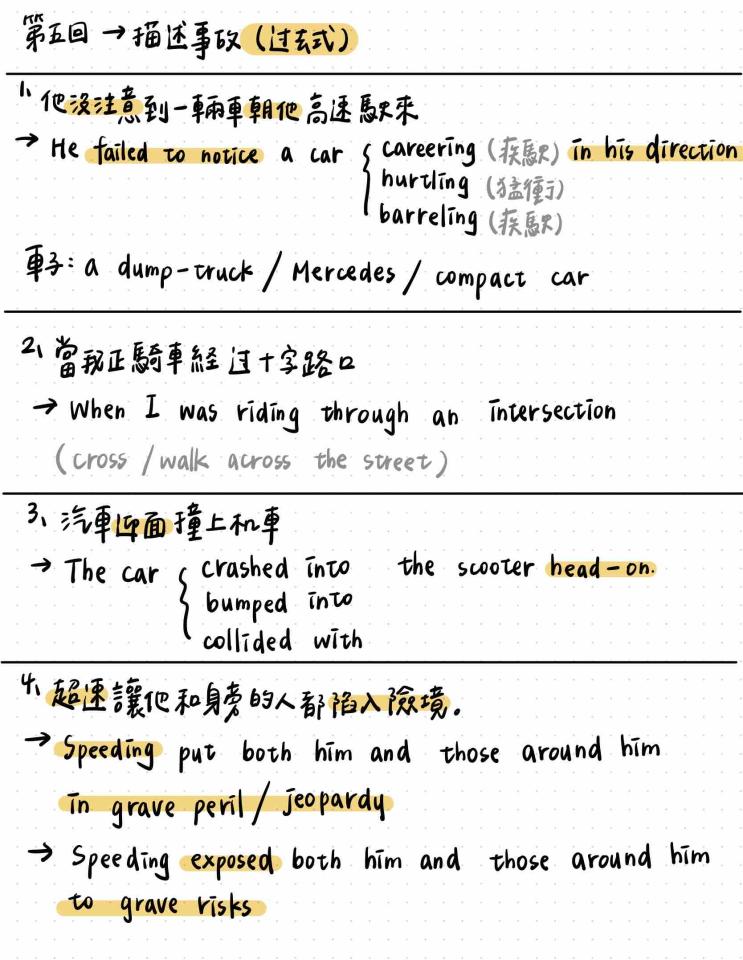 第五回 → 描述事故 (过去式)
1、他沒注意到一輛車朝他高速駛來
→ He failed to notice a car { careering (疾駛) in his direction
hurtling (猛衝)
barreling (疾駛)
車子: a dump-truck / Mercedes / compact car
2、當我正騎車経过十字路口
→ When I was riding through an intersection
(cross / walk across the street)
3、汽車迎面撞上机車
→ The car { crashed into the scooter head-on.
bumped into
collided with
4、超速讓他和身旁的人都陷入險境.
→ Speeding put both him and those around him
in grave peril / jeopardy
→ Speeding exposed both him and those around him
to grave risks